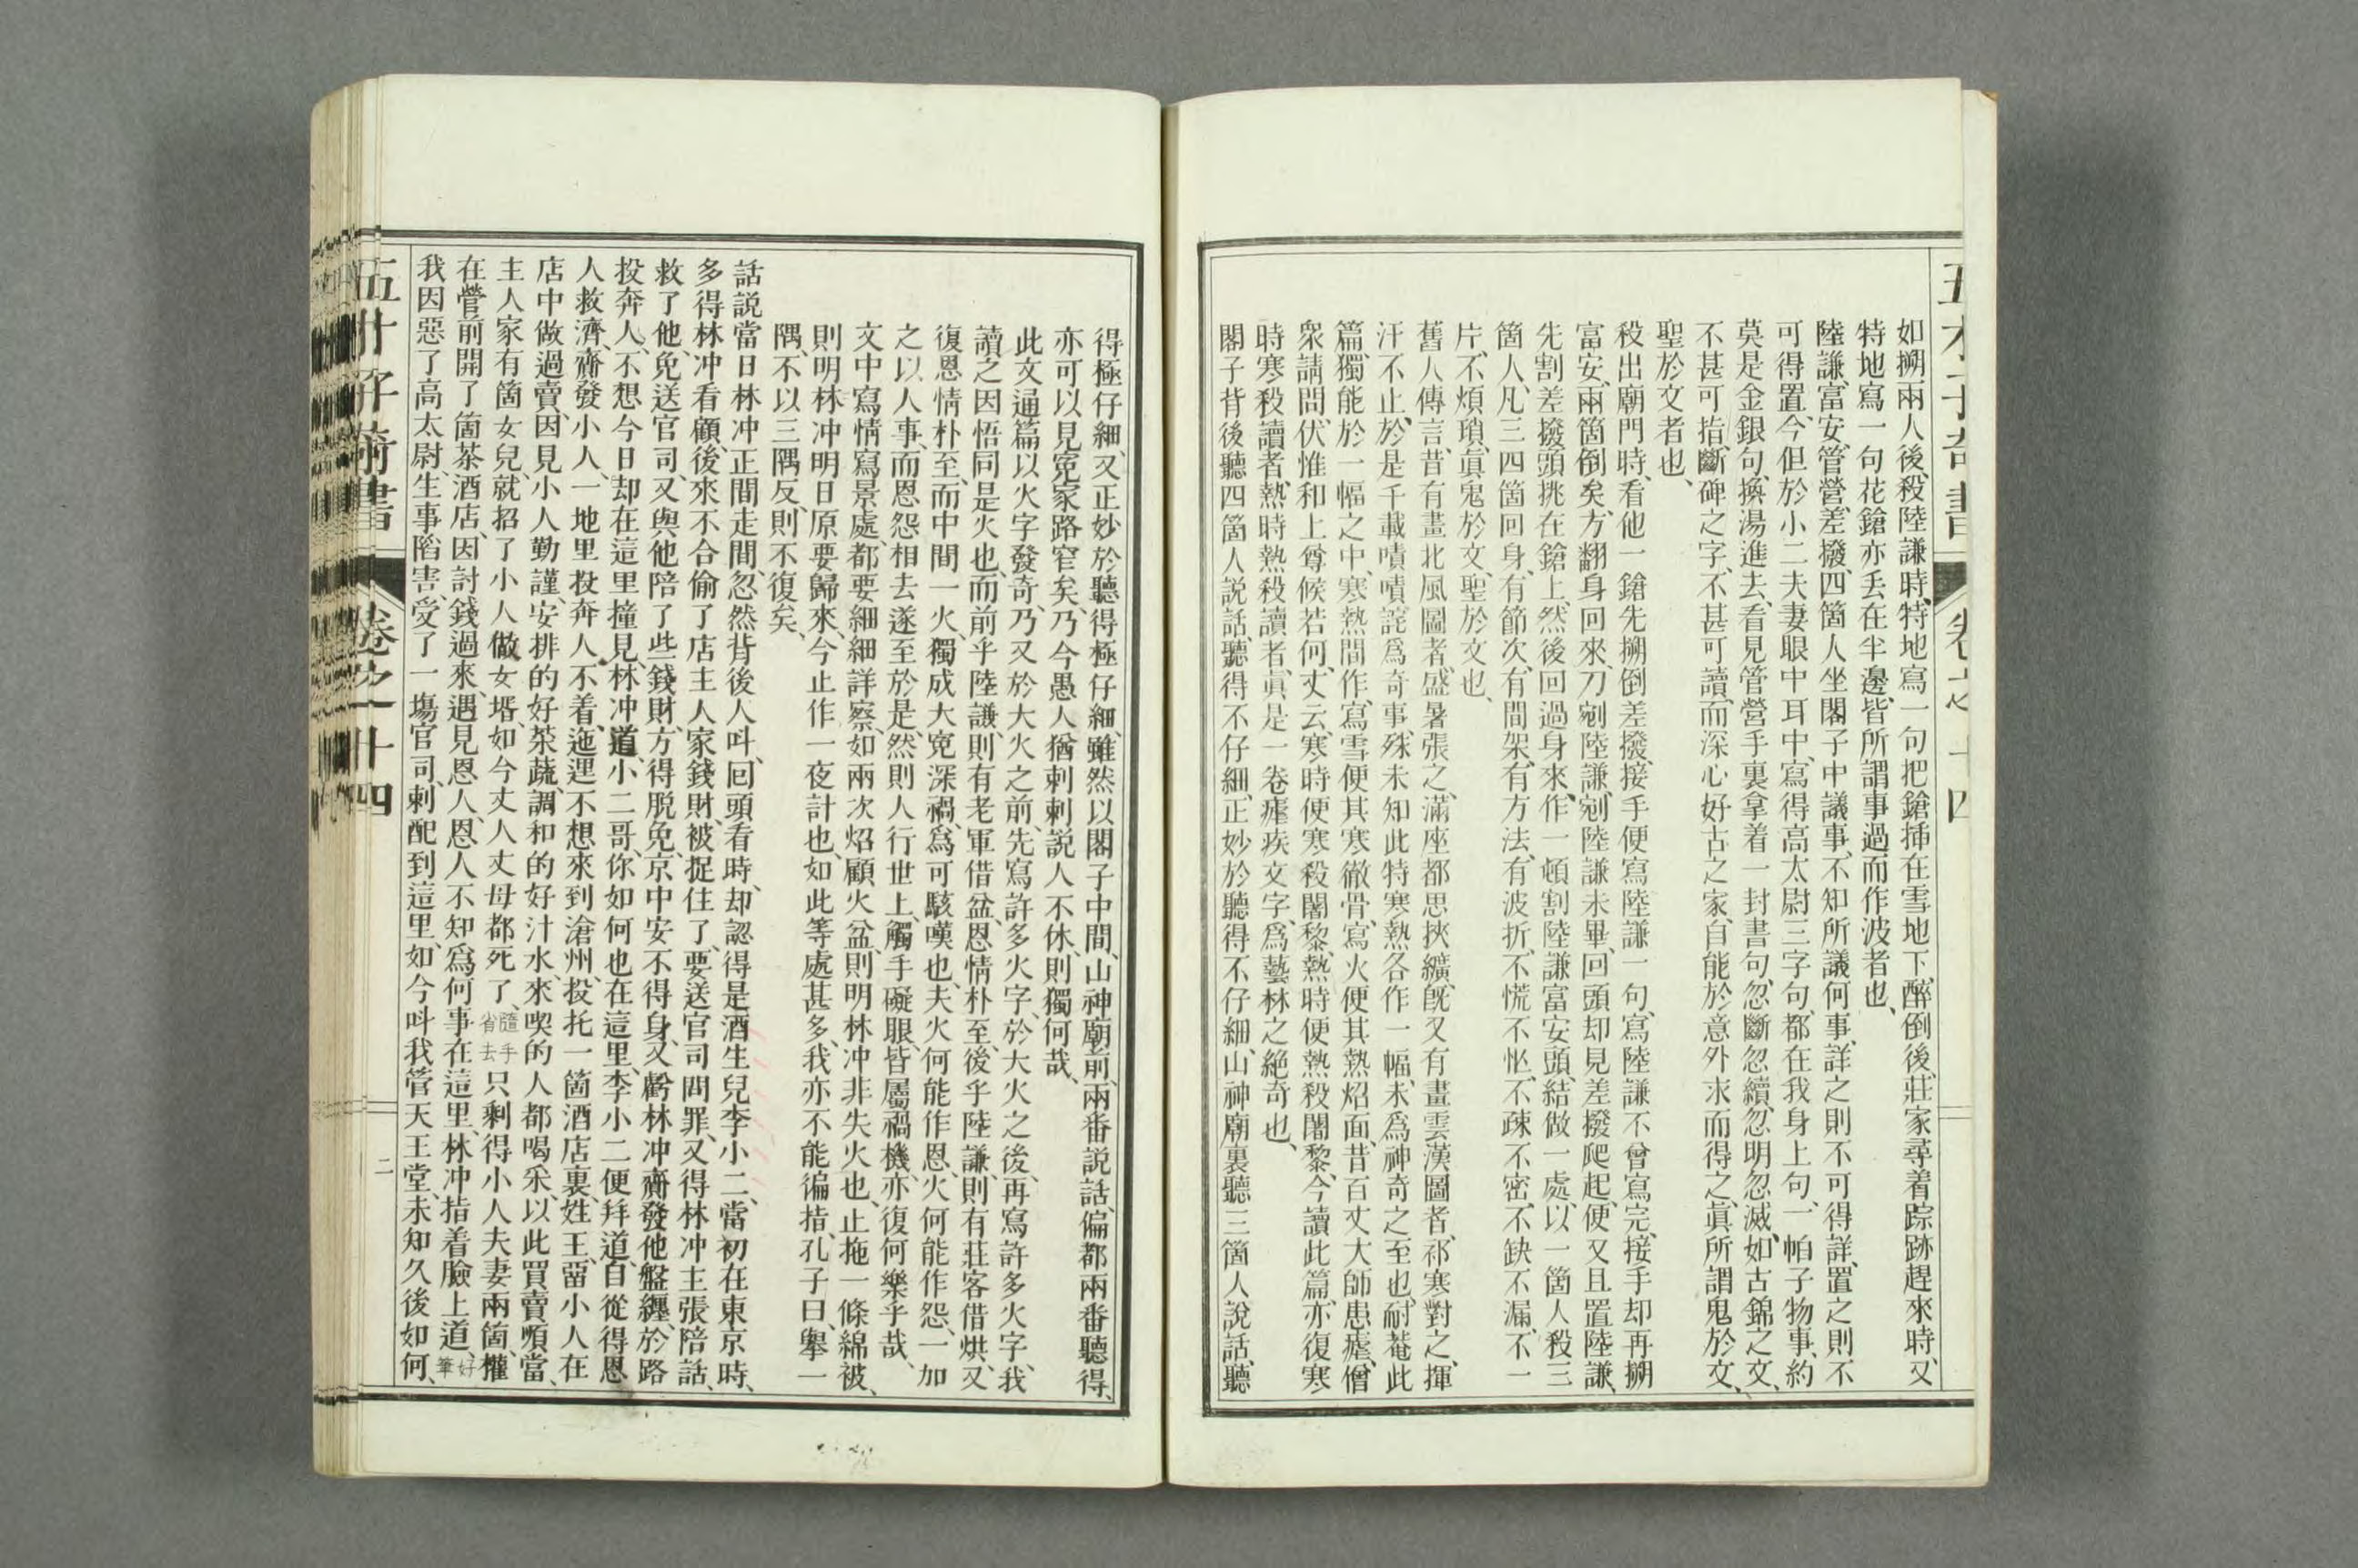 五才子奇書 卷之十四
如搠兩人後、殺陸謙時、特地寫一句把鎗揷在雪地下、醉倒後、莊家尋着踪跡趕來時、又
特地寫一句花鎗亦丢在半邊、皆所謂事過而作波者也、
陸謙、富安、管營、差撥、四箇人坐閣子中議事、不知所議何事、詳之則不可得詳、置之則不
可得置、今但於小二夫妻眼中耳中、寫得高太尉三字句、都在我身上句、一帕子物事、約
莫是金銀句、換湯進去、看見管營手裏拿着一封書句、忽斷忽續、忽明忽滅、如古錦之文、
不甚可指、斷碑之字、不甚可讀、而深心好古之家、自能於意外求而得之、眞所謂鬼於文、
聖於文者也、
殺出廟門時、看他一鎗先搠倒差撥、接手便寫陸謙一句、寫陸謙不曾寫完、接手却再搠
富安、兩箇倒矣、方翻身回來、刀剜陸謙、剜陸謙未畢、回頭却見差撥爬起、便又且置陸謙、
先割差撥頭挑在鎗上、然後回過身來、作一頓割陸謙富安頭、結做一處、以一箇人殺三
箇人、凡三四箇回身、有節次、有間架、有方法、有波折、不慌不忙、不疎不密、不缺不漏、不一
片、不煩瑣、眞鬼於文、聖於文也、
舊人傳言、昔有畫北風圖者、盛暑張之、滿座都思挾纊、旣又有畫雲漢圖者、祁寒對之、揮
汗不止、於是千載嘖嘖、詫爲奇事、殊未知此特寒熱各作一幅、未爲神奇之至也、耐菴此
篇、獨能於一幅之中、寒熱間作、寫雪便其寒徹骨、寫火便其熱炤面、昔百丈大師患瘧、僧
衆請問、伏惟和上尊候若何、丈云、寒時便寒殺闍黎、熱時便熱殺闍黎、今讀此篇、亦復寒
時寒殺讀者、熱時熱殺讀者、眞是一卷瘧疾文字、爲藝林之絶奇也、
閣子背後聽四箇人說話、聽得不仔細、正妙於聽得不仔細、山神廟裏聽三箇人說話、聽
得極仔細、又正妙於聽得極仔細、雖然以閣子中間、山神廟前、兩番說話、偏都兩番聽得、
亦可以見冤家路窄矣、乃今愚人猶刺刺說人不休、則獨何哉、
此文通篇以火字發奇、乃又於大火之前、先寫許多火字、於大火之後、再寫許多火字、我
讀之因悟同是火也、而前乎陸謙、則有老軍借盆、恩情朴至、後乎陸謙、則有莊客借烘、又
復恩情朴至、而中間一火、獨成大冤深禍、爲可駭嘆也、夫火何能作恩、火何能作怨、一加
之以人事、而恩怨相去遂至於是、然則人行世上、觸手礙眼、皆屬禍機、亦復何樂乎哉、
文中寫情寫景處、都要細細詳察、如兩次炤顧火盆、則明林冲非失火也、止拖一條綿被、
則明林冲明日原要歸來、今止作一夜計也、如此等處甚多、我亦不能徧指、孔子曰、擧一
隅、不以三隅反、則不復矣、
話說當日林冲正間走間、忽然背後人呌、回頭看時、却認得是酒生兒李小二、當初在東京時、
多得林冲看顧、後來不合偷了店主人家錢財、被捉住了、要送官司問罪、又得林冲主張陪話、
救了他、免送官司、又與他陪了些錢財、方得脫免、京中安不得身、又虧林冲齎發他盤纏、於路
投奔人、不想今日却在這里撞見、林冲道、小二哥、你如何也在這里、李小二便拜道、自從得恩
人救濟、齎發小人、一地里投奔人不着、迤邐不想來到滄州、投托一箇酒店裏、姓王、畱小人在
店中做過賣、因見小人勤謹、安排的好菜蔬、調和的好汁水、來喫的人都喝采、以此買賣順當、
主人家有箇女兒、就招了小人做女壻、如今丈人丈母都死了、隨手省去只剩得小人夫妻兩箇、權
在營前開了箇茶酒店、因討錢過來、遇見恩人、恩人不知爲何事在這里、林冲指着臉上道、好筆
我因惡了高太尉、生事陷害、受了一塲官司、刺配到這里、如今呌我管天王堂、未知久後如何、
卷之十四
二